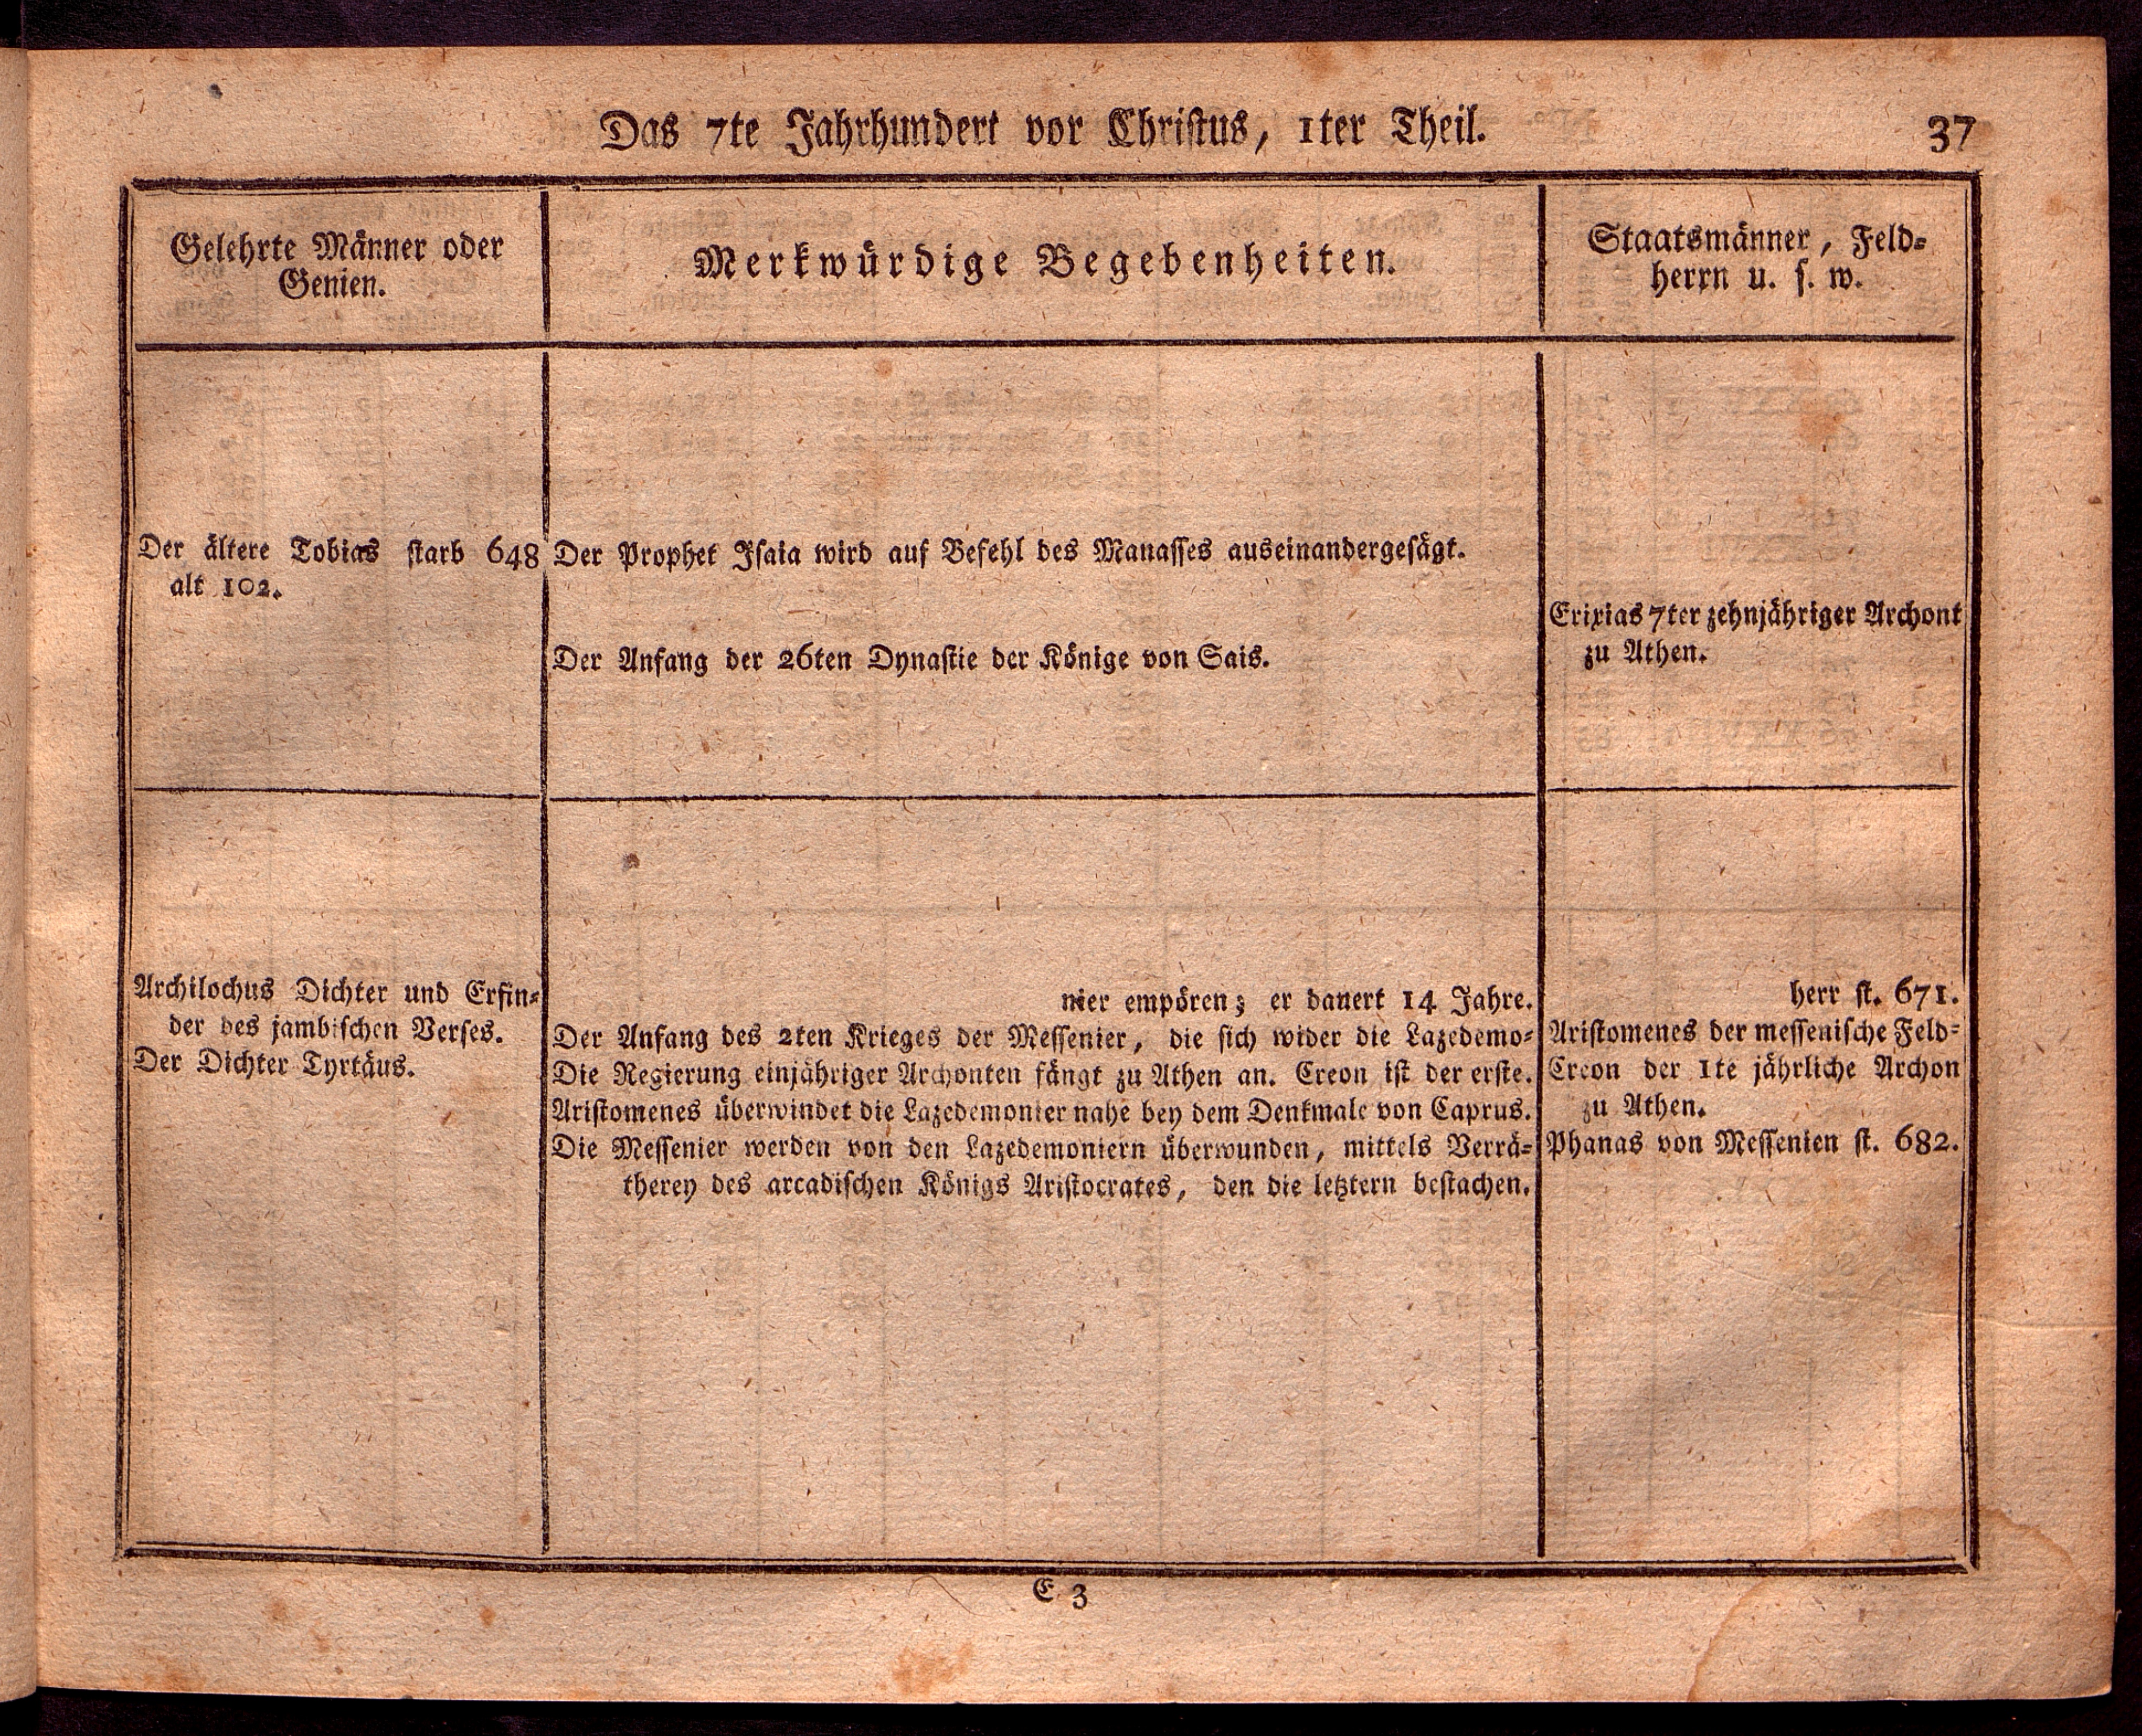 Das 7te Jahrhundert vor Christus, 1ter Theil.
37
Gelehrte Männer oder
Genien.
Merkwürdige Begebenheiten.
Staatsmänner, Feld-
herrn u. s. w.
Der ältere Tobias starb 648
alt 102.
Der Prophet Isaia wird auf Befehl des Manasses auseinandergesägt.
Der Anfang der 26ten Dynastie der Könige von Sais.
Erixias 7ter zehnjähriger Archont
zu Athen.
Archilochus Dichter und Erfin-
der des jambischen Verses.
Der Dichter Tyrtäus.
nier empören; er dauert 14 Jahre.
Der Anfang des 2ten Krieges der Messenier, die sich wider die Lazedemo-
Die Regierung einjähriger Archonten fängt zu Athen an. Creon ist der erste.
Aristomenes überwindet die Lazedemonier nahe bey dem Denkmale von Caprus.
Die Messenier werden von den Lazedemoniern überwunden, mittels Verrä-
therey des arcadischen Königs Aristocrates, den die letztern bestachen.
herr st. 671.
Aristomenes der messenische Feld-
Creon der 1te jährliche Archon
zu Athen.
Phanas von Messenien st. 682.
E 3